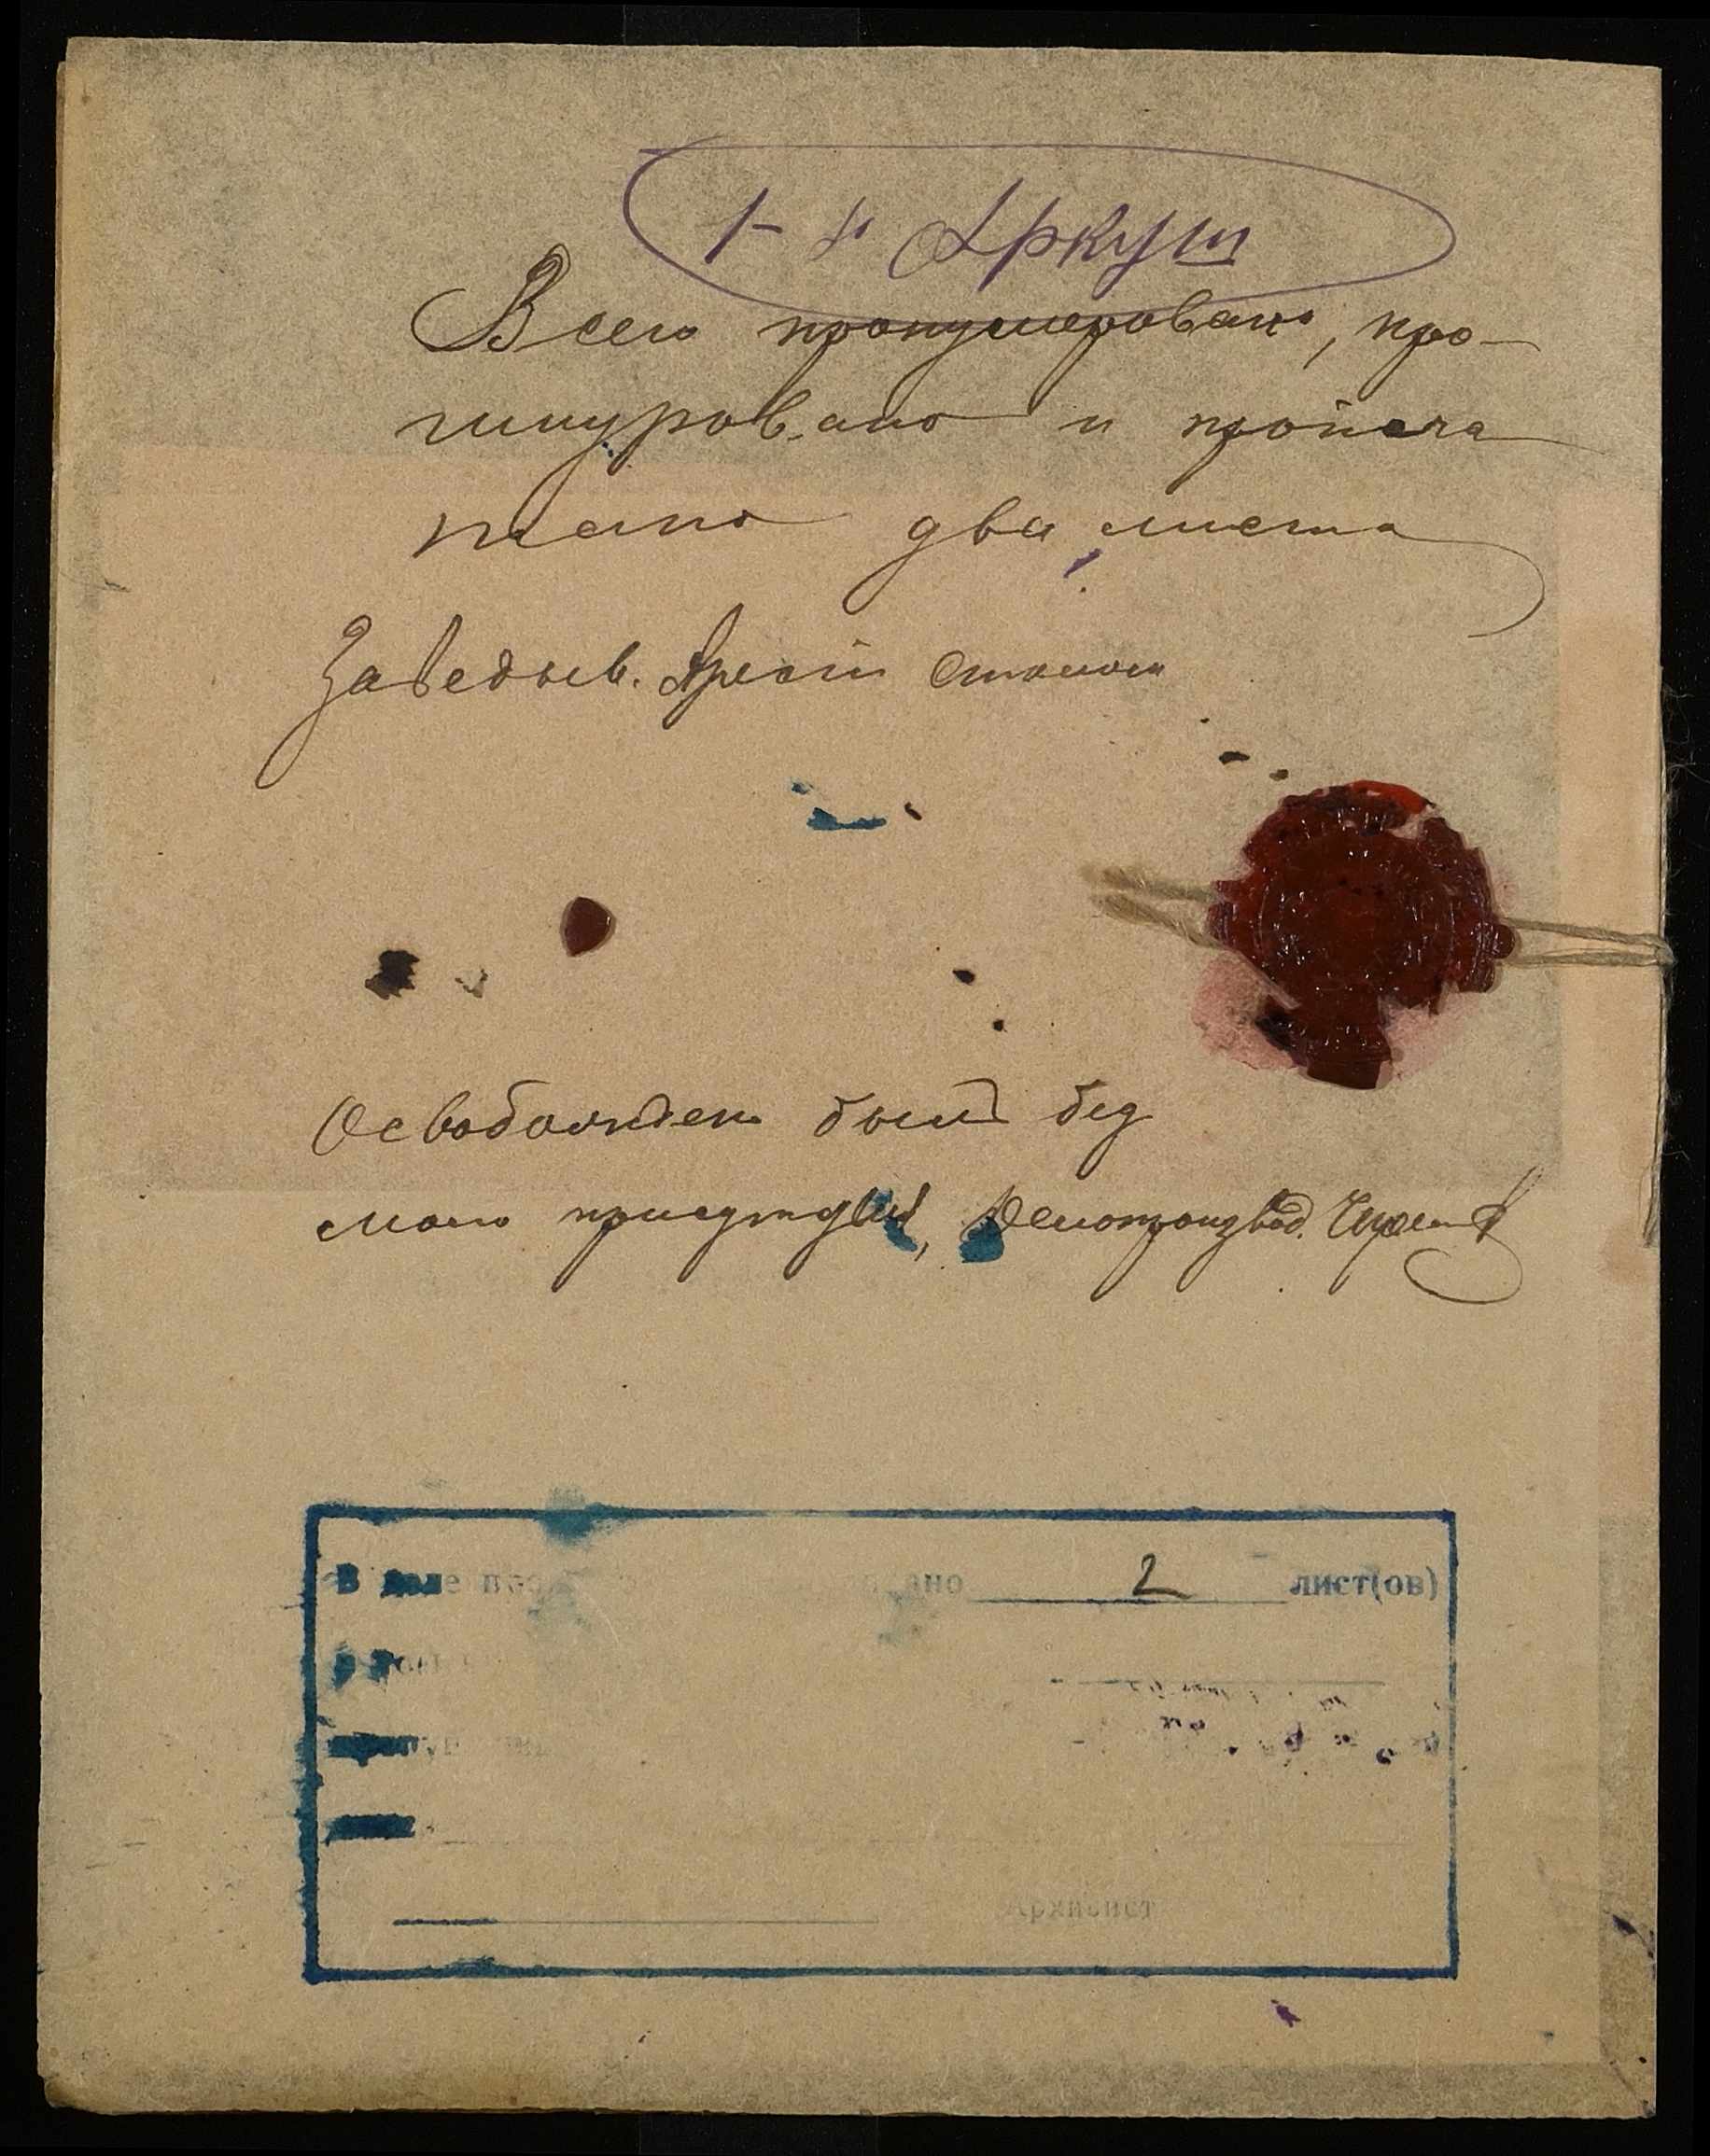 1-н Аркуш
Всего пронумеровано, про-
шнуровано и пропеча
тано два листа
Заведыв. Арест столом
Освобожден был без
моего присутствия, Делопроизвод.
В деле ано 2 лист(ов)
Архивист